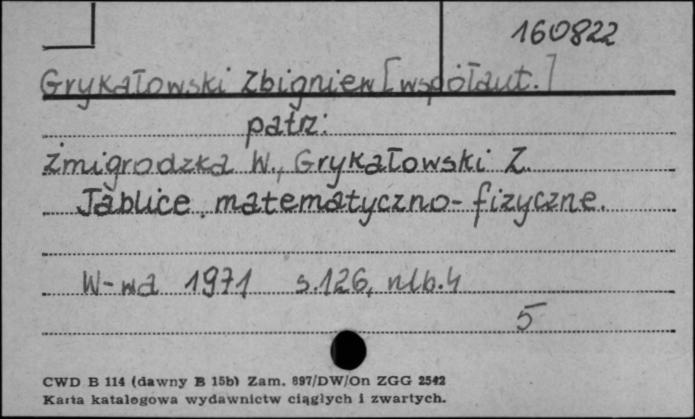 160822
Grykałowski Zbigniew [współaut.]
patrz:
Żmigrodzka W., Grykałowski Z.
Tablice matematyczno-fizyczne.
W-wa 1971 s.126, nlb.4
5
CWD B 114 (dawny B 15b) Zam. 897/DW/On ZGG 2542
Karta katalogowa wydawnictw ciągłych i zwartych.